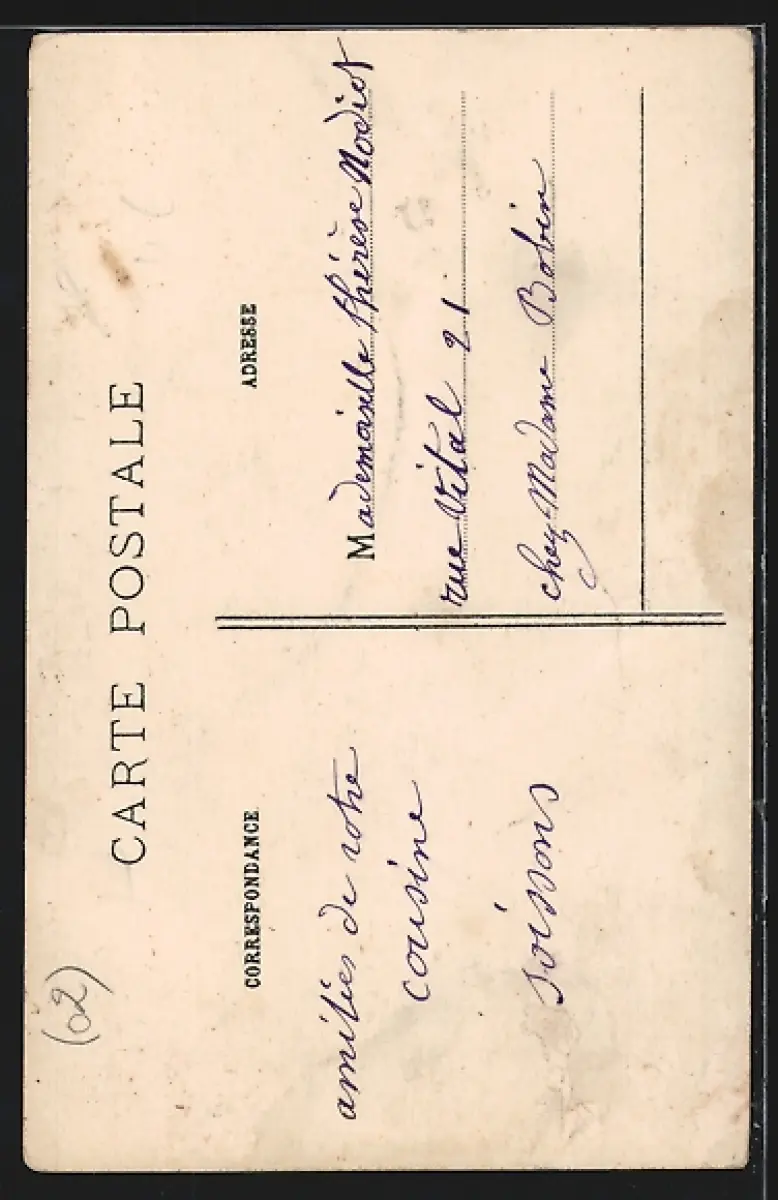 (02)
CARTE POSTALE
CORRESPONDANCE
amitiés de votre
cousine
soissons
ADRESSE
Mademoiselle thérèse Nodiot
rue Vital 21
chez Madame Bobin